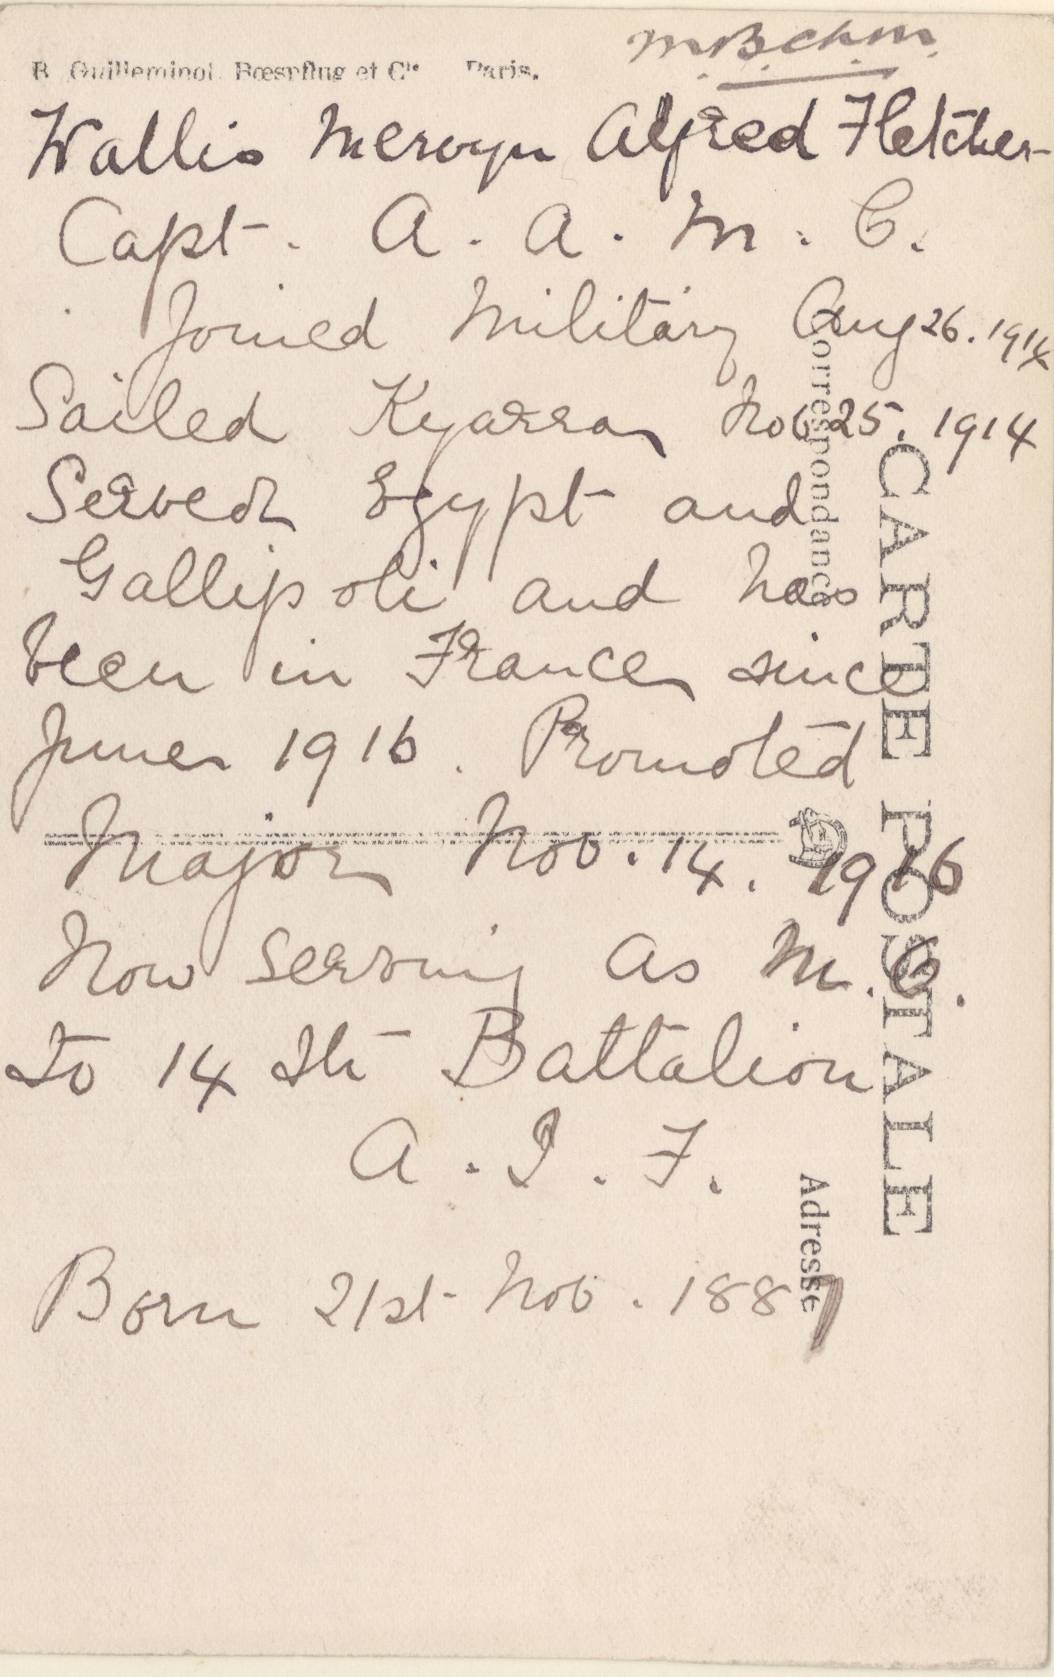 M B ch m
R. Guilleminot, Bœspflug et Cie Paris.
Wallis Mervyn Alfred Fletcher
Capt. A. A. M. C.
Joined Military Aug 26. 1914
Sailed Kyarra Nov 25. 1914
Served Egypt and
Gallipoli and has
been in France since
June 1916. Promoted
Major Nov. 14. 1916
Now serving as M. O.
to 14 th Battalion
A. I. F.
Born 21st Nov. 1887
CARTE POSTALE
Correspondance
Adresse